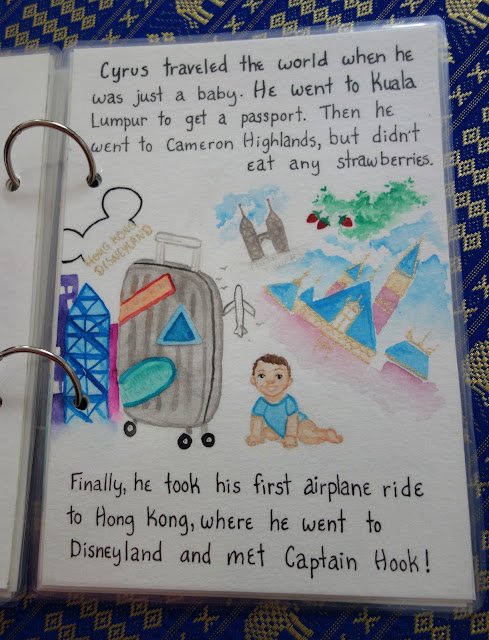 Cyrus traveled the world when he
was just a baby. He went to Kuala
Lumpur to get a passport. Then he
went to Cameron Highlands, but didn't
eat any strawberries.
HONG KONG
DISNEYLAND
Finally, he took his first airplane ride
to Hong Kong, where he went to
Disneyland and met Captain Hook!